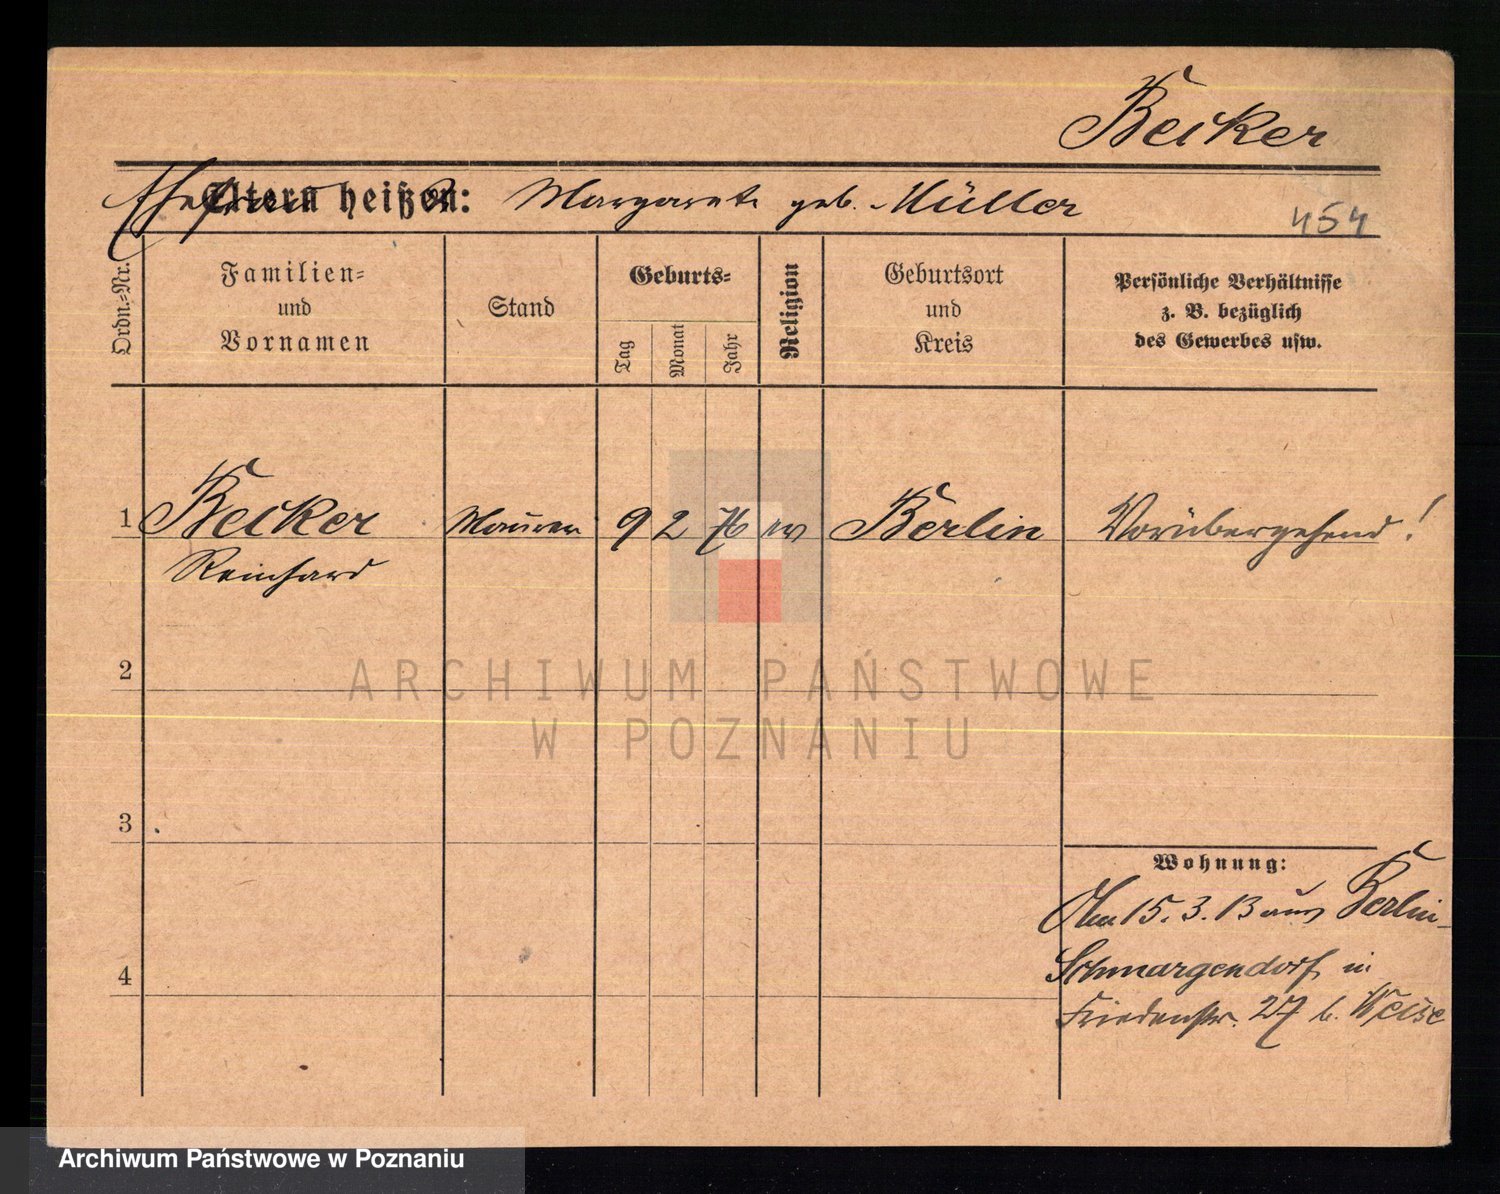 Becker
Eltern heißen: Margarete geb. Müller
Ehefrau
454
Ordn.-Nr.
Familien-
und
Vornamen
Stand
Geburts-
Tag
Monat
Jahr
Religion
Geburtsort
und
Kreis
Persönliche Verhältnisse
z. B. bezüglich
des Gewerbes usw.
1 Becker Maurer 9 2 76 ev Berlin Vorübergehend!
Reinhard
2
ARCHIWUM PAŃSTWOWE
W POZNANIU
3
Wohnung:
Am 15.3.13 aus Berlin-
Schmargendorf in
4
Friedenstr. 27 b. Weise
Archiwum Państwowe w Poznaniu